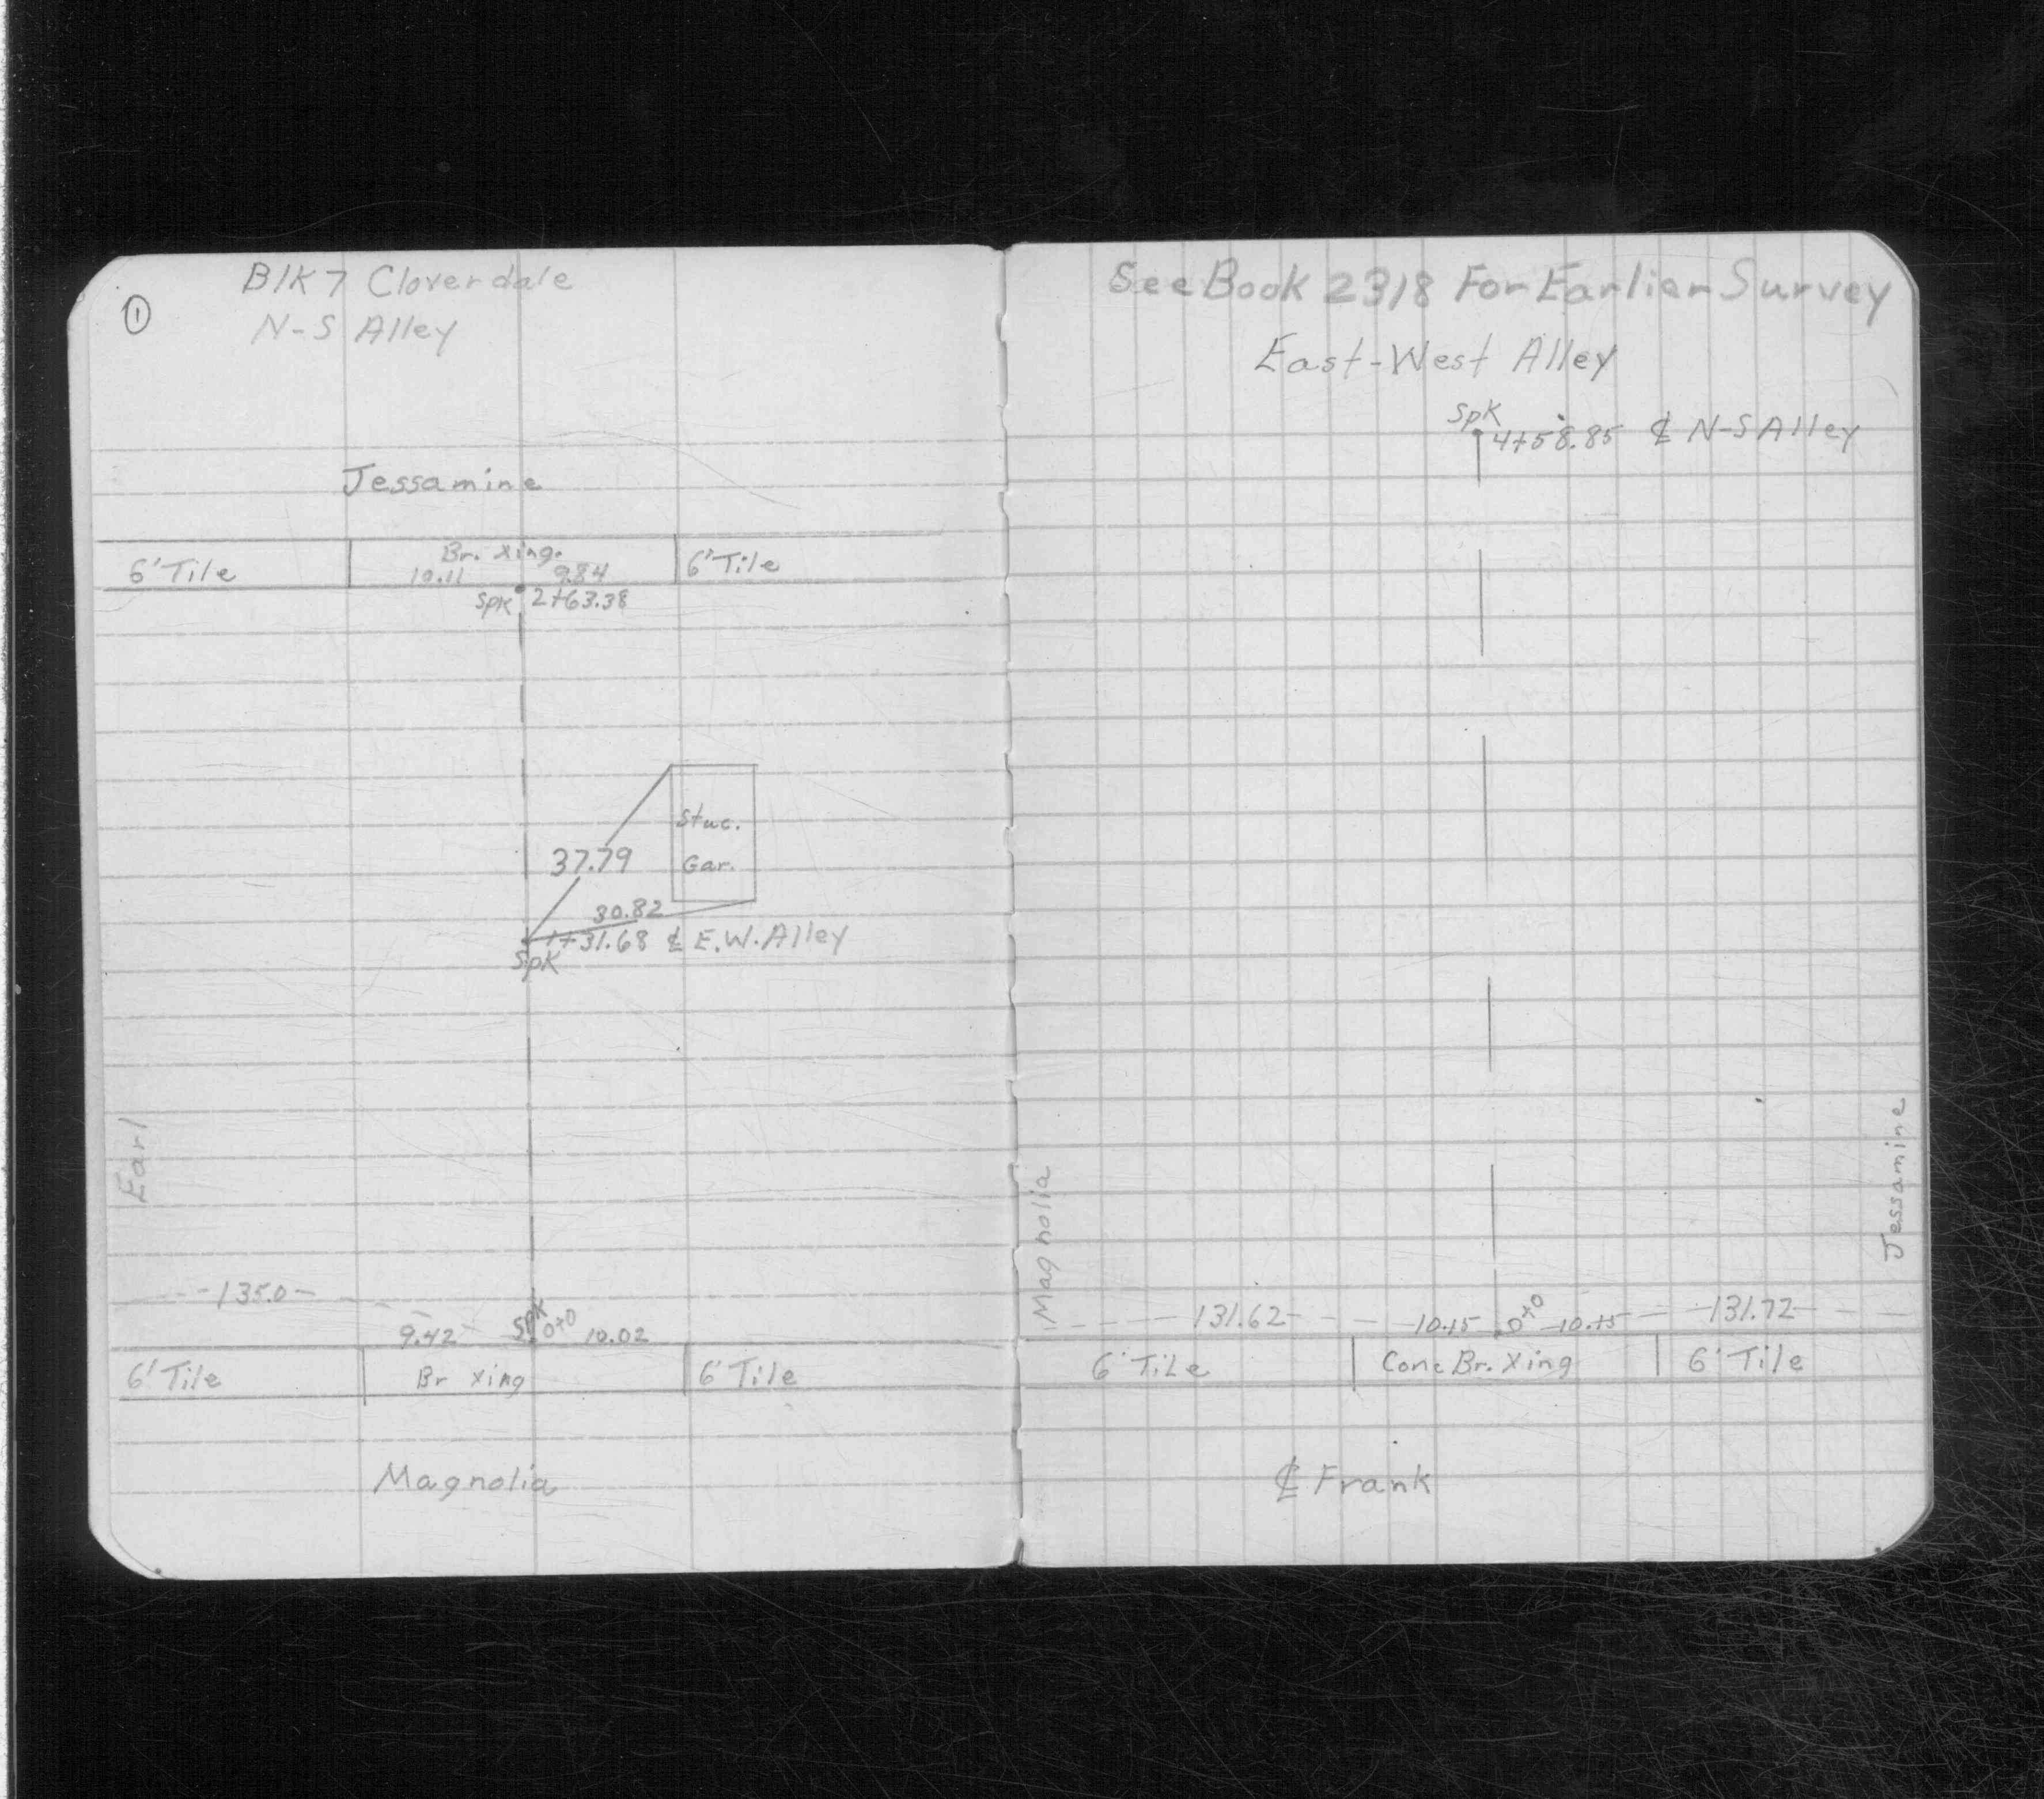 ①
Blk 7 Cloverdale
N-S Alley
Jessamine
Br. Xing.
6' Tile 10.11 9.84 6' Tile
Spk 2+63.38
Stuc.
37.79 Gar.
30.82
1+31.68 ℄ E.W. Alley
Spk
Earl
135.0
Spk
9.42 0+0 10.02
6' Tile Br Xing 6' Tile
Magnolia
See Book 2318 For Earlier Survey
East-West Alley
Spk
4+58.85 ℄ N-S Alley
Magnolia
Jessamine
131.62 10.15 0+0 10.15 131.72
6' Tile Conc Br. Xing 6' Tile
℄ Frank